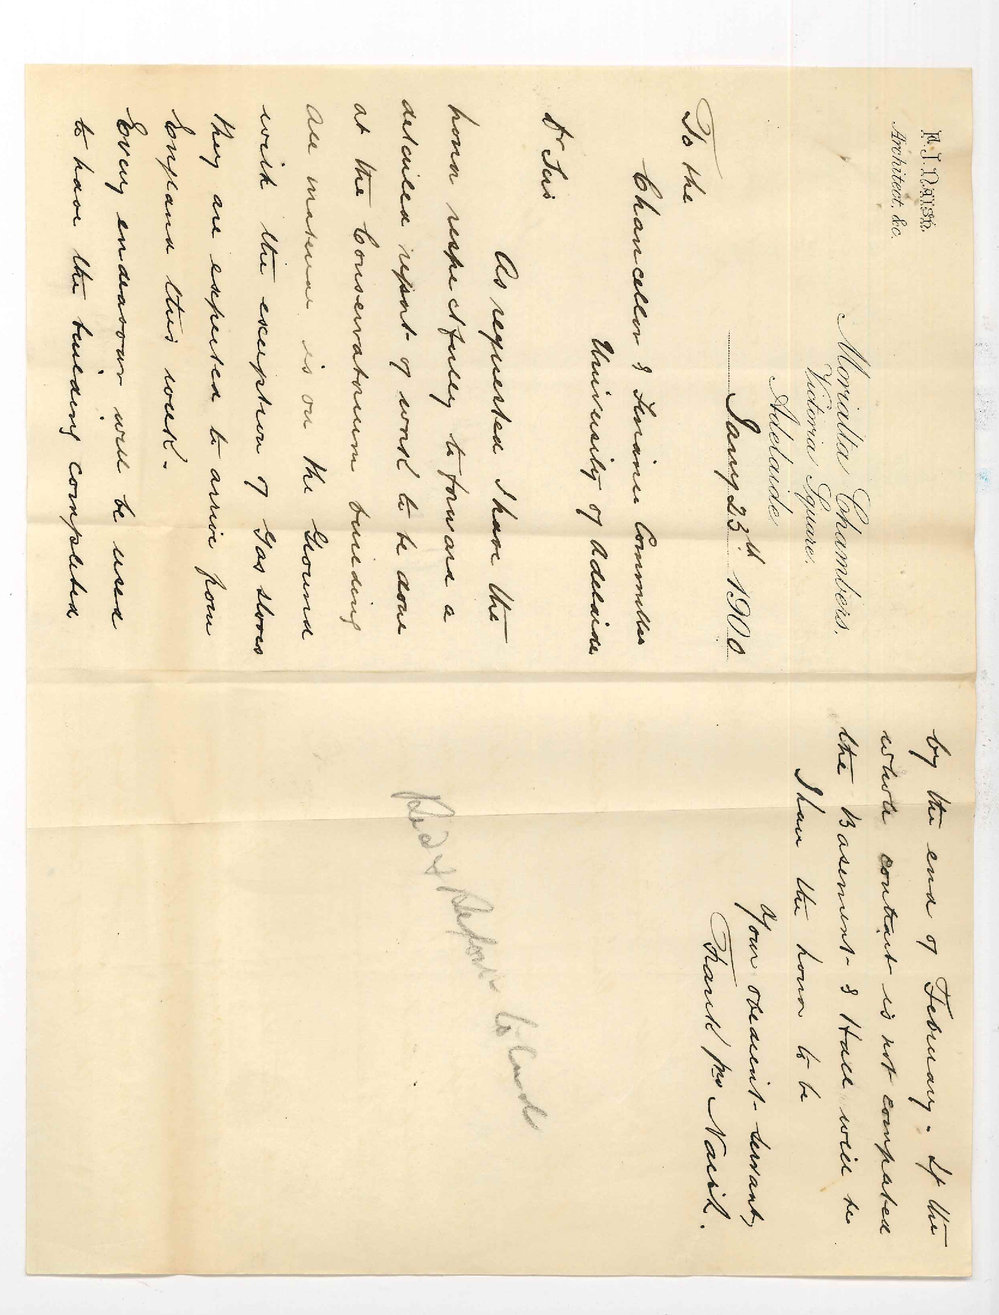 F. J. Naish.
Architect, &c.
Morialta Chambers.
Victoria Square.
Adelaide
Jany 23th 1900
To the
Chancellor & Finance Committee
University of Adelaide
Dr Sirs
As requested I have the
honor respectfully to forward a
detailed report of work to be done
at the Conservatorium building
All material is on the Ground
with the exception of Gas stoves
They are expected to arrive from
England this week.
Every endeavour will be used
to have the building completed
by the end of February. If the
whole contract is not completed
the Basement & Hall will be
I have the honor to be
Your obedient servant
Frank Jno Naish.
& Report to